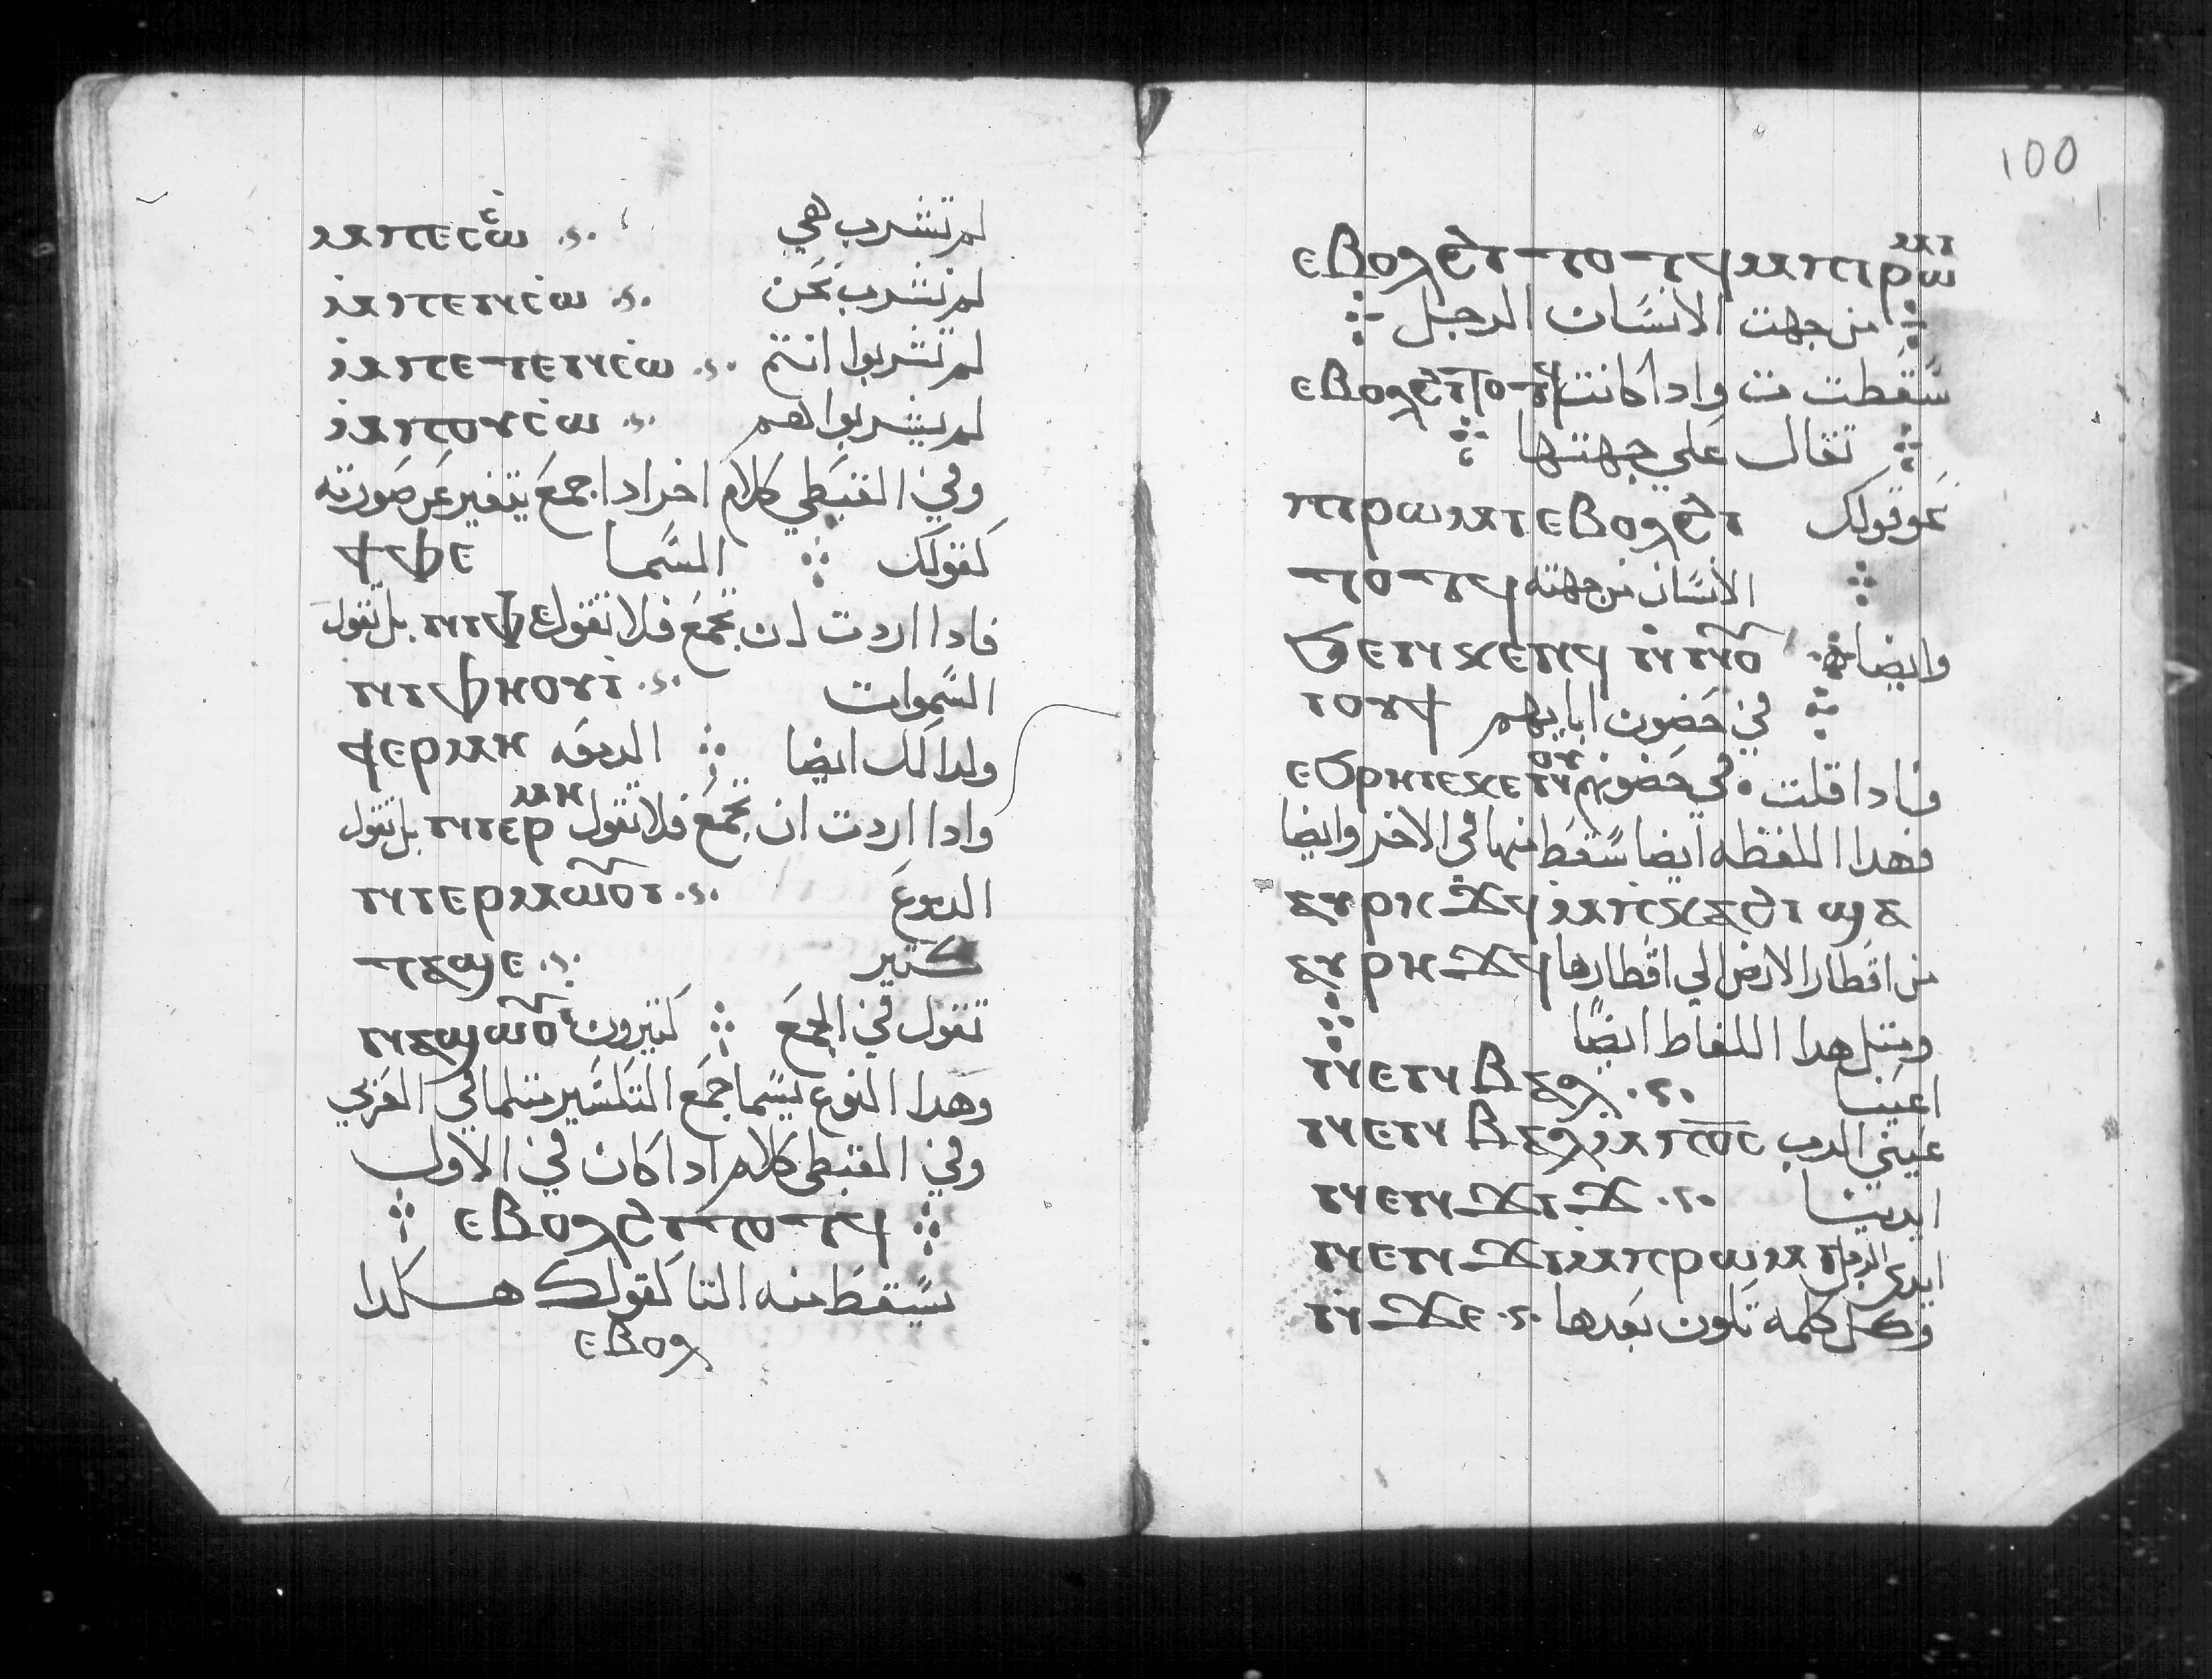 لم تشرب هي ⲙⲡⲉⲥⲥⲱ
لم نشرب نحن ⲙⲡⲉⲛⲥⲱ
لم تشربوا انتم ⲙⲡⲉⲧⲉⲛⲥⲱ
لم يشربوا هم ⲙⲡⲟⲩⲥⲱ
وفي القبطي كلام اخر ادا جمع يتغير عن صورته
كقولك السما ⲧⲫⲉ
فادا اردت ان تجمع فلا تقول ⲛⲓⲫⲉ بل تقول
السموات ⲛⲓⲫⲏⲟⲩⲓ
ولدالك ايضا الدمعه ϯⲉⲣⲙⲏ
وادا اردت ان تجمع فلا تقول ⲛⲓⲉⲣⲙⲏ بل تقول
الدموع ⲛⲓⲉⲣⲙⲱⲟⲩⲓ
كتير ⲛⲁϣⲉ
تقول في الجمع كتيرون ⲛⲁϣⲱⲟⲩ
وهدا النوع يسما جمع التكسير متلما في العربي
وفي القبطي كلام ادا كان في الاول
ⲉⲃⲟⲗϩⲓⲧⲟⲧϥ
يسقط منه التا كقولك هكدا
ⲉⲃⲟⲗ
100
ⲉⲃⲟⲗϩⲓⲧⲟⲧϥⲙⲡⲓⲣⲱⲙⲓ
من جهت الانسان الرجل
سقطت ت وادا كانت ⲉⲃⲟⲗϩⲓⲧⲟⲧϥ
تقال علي جهتها
نحو قولك ⲡⲓⲣⲱⲙⲓⲉⲃⲟⲗϩⲓ
الانسان من جهته ⲧⲟⲧϥ
وايضا ϧⲉⲛⲕⲉⲛϥ ⲛⲛⲟⲩ
في حضون ابايهم ⲓⲟϯ
فادا قلت في حضونهم ⲉϧⲣⲏⲓⲉⲕⲉⲛⲟⲩ
فهدا اللفظه ايضا سقط منها في الاخر وايضا
ⲁⲩⲣⲏϫϥ ⲙⲡⲕⲁϩⲓ ϣⲁ
من اقطار الارض الي اقطارها ⲁⲩⲣⲏϫϥ
ومتل هدا اللفاط ايضا
اعيننا ⲛⲉⲛⲃⲁⲗ
عيني الرب ⲛⲉⲛⲃⲁⲗⲙⲡⲟⲥ
ايدينا ⲛⲉⲛϫⲓϫ
ايدي الرجل ⲛⲉⲛϫⲓⲙⲡⲣⲱⲙⲓ
وكل كلمه تكون بعدها ⲛϫⲉ